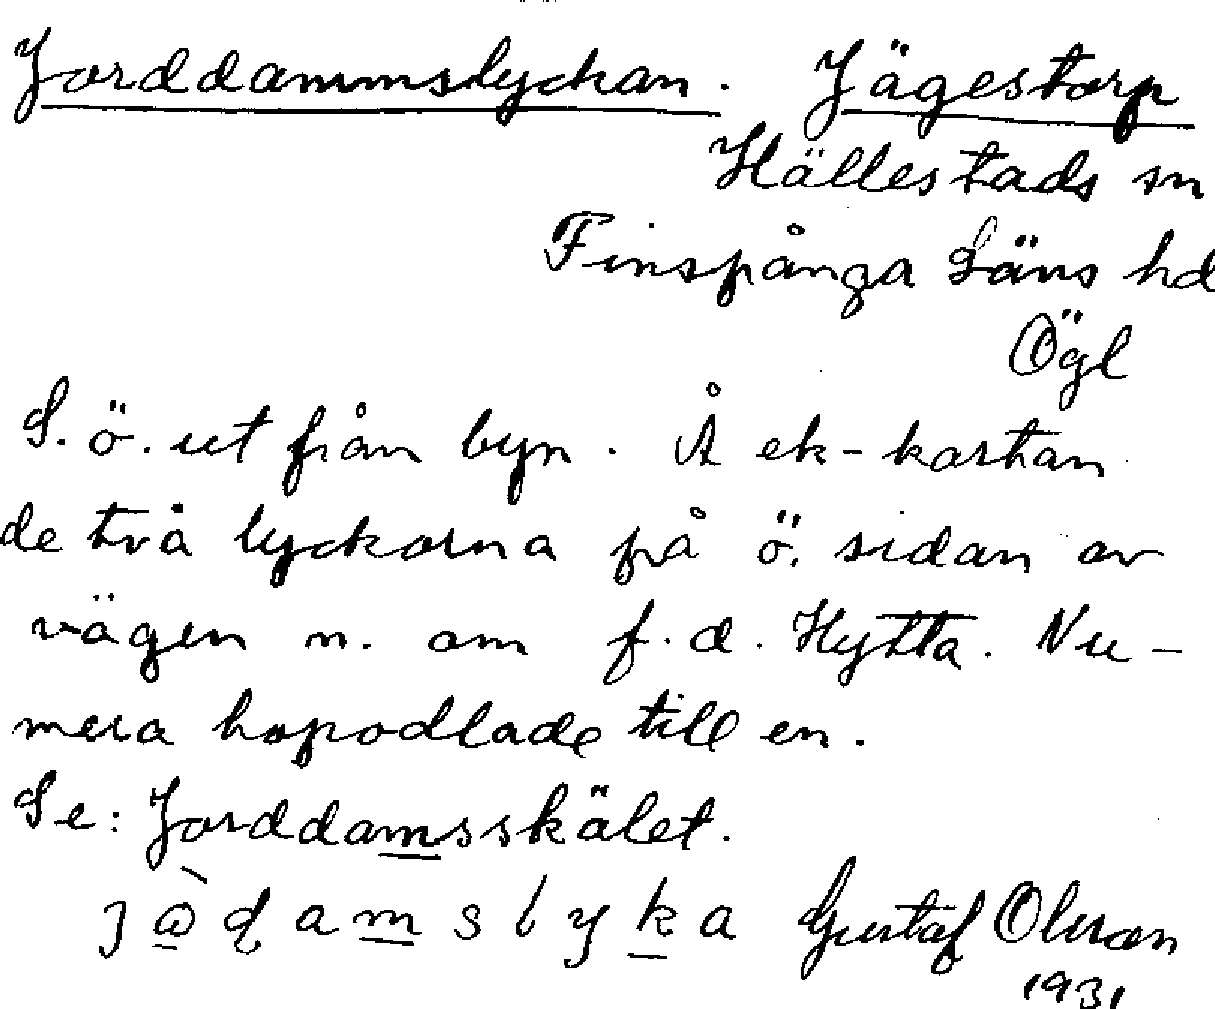 Jorddammslyckan. Jägestorp
Hällestads sn
Finspånga Läns hd
Ögl
S. ö. ut från byn. Å ek-kartan
de två lyckorna på ö. sidan av
vägen n. om f.d. Hytta. Nu-
mera hopodlade till en.
Se: Jorddamsskälet.
Gustaf Olsson
1931